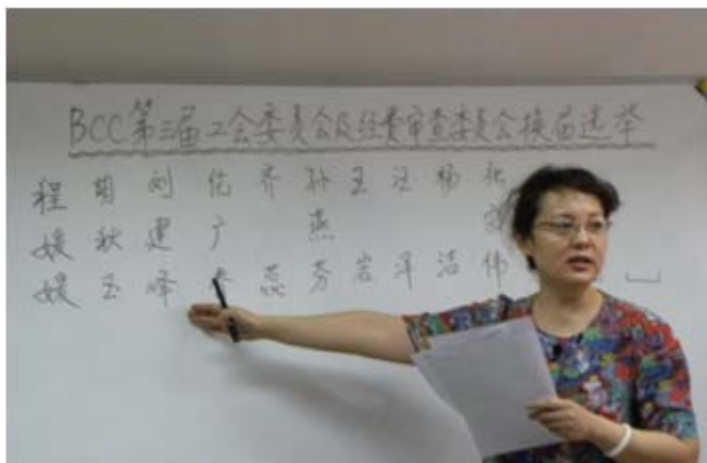 BCC第三届工会委员会及经费审查委员会换届选举
程 胡 刘 伍 齐 孙 王 汪 杨
媛 秋 建 广 燕
媛 玉 峰 蕊 芬 岩 洋 洁 伟